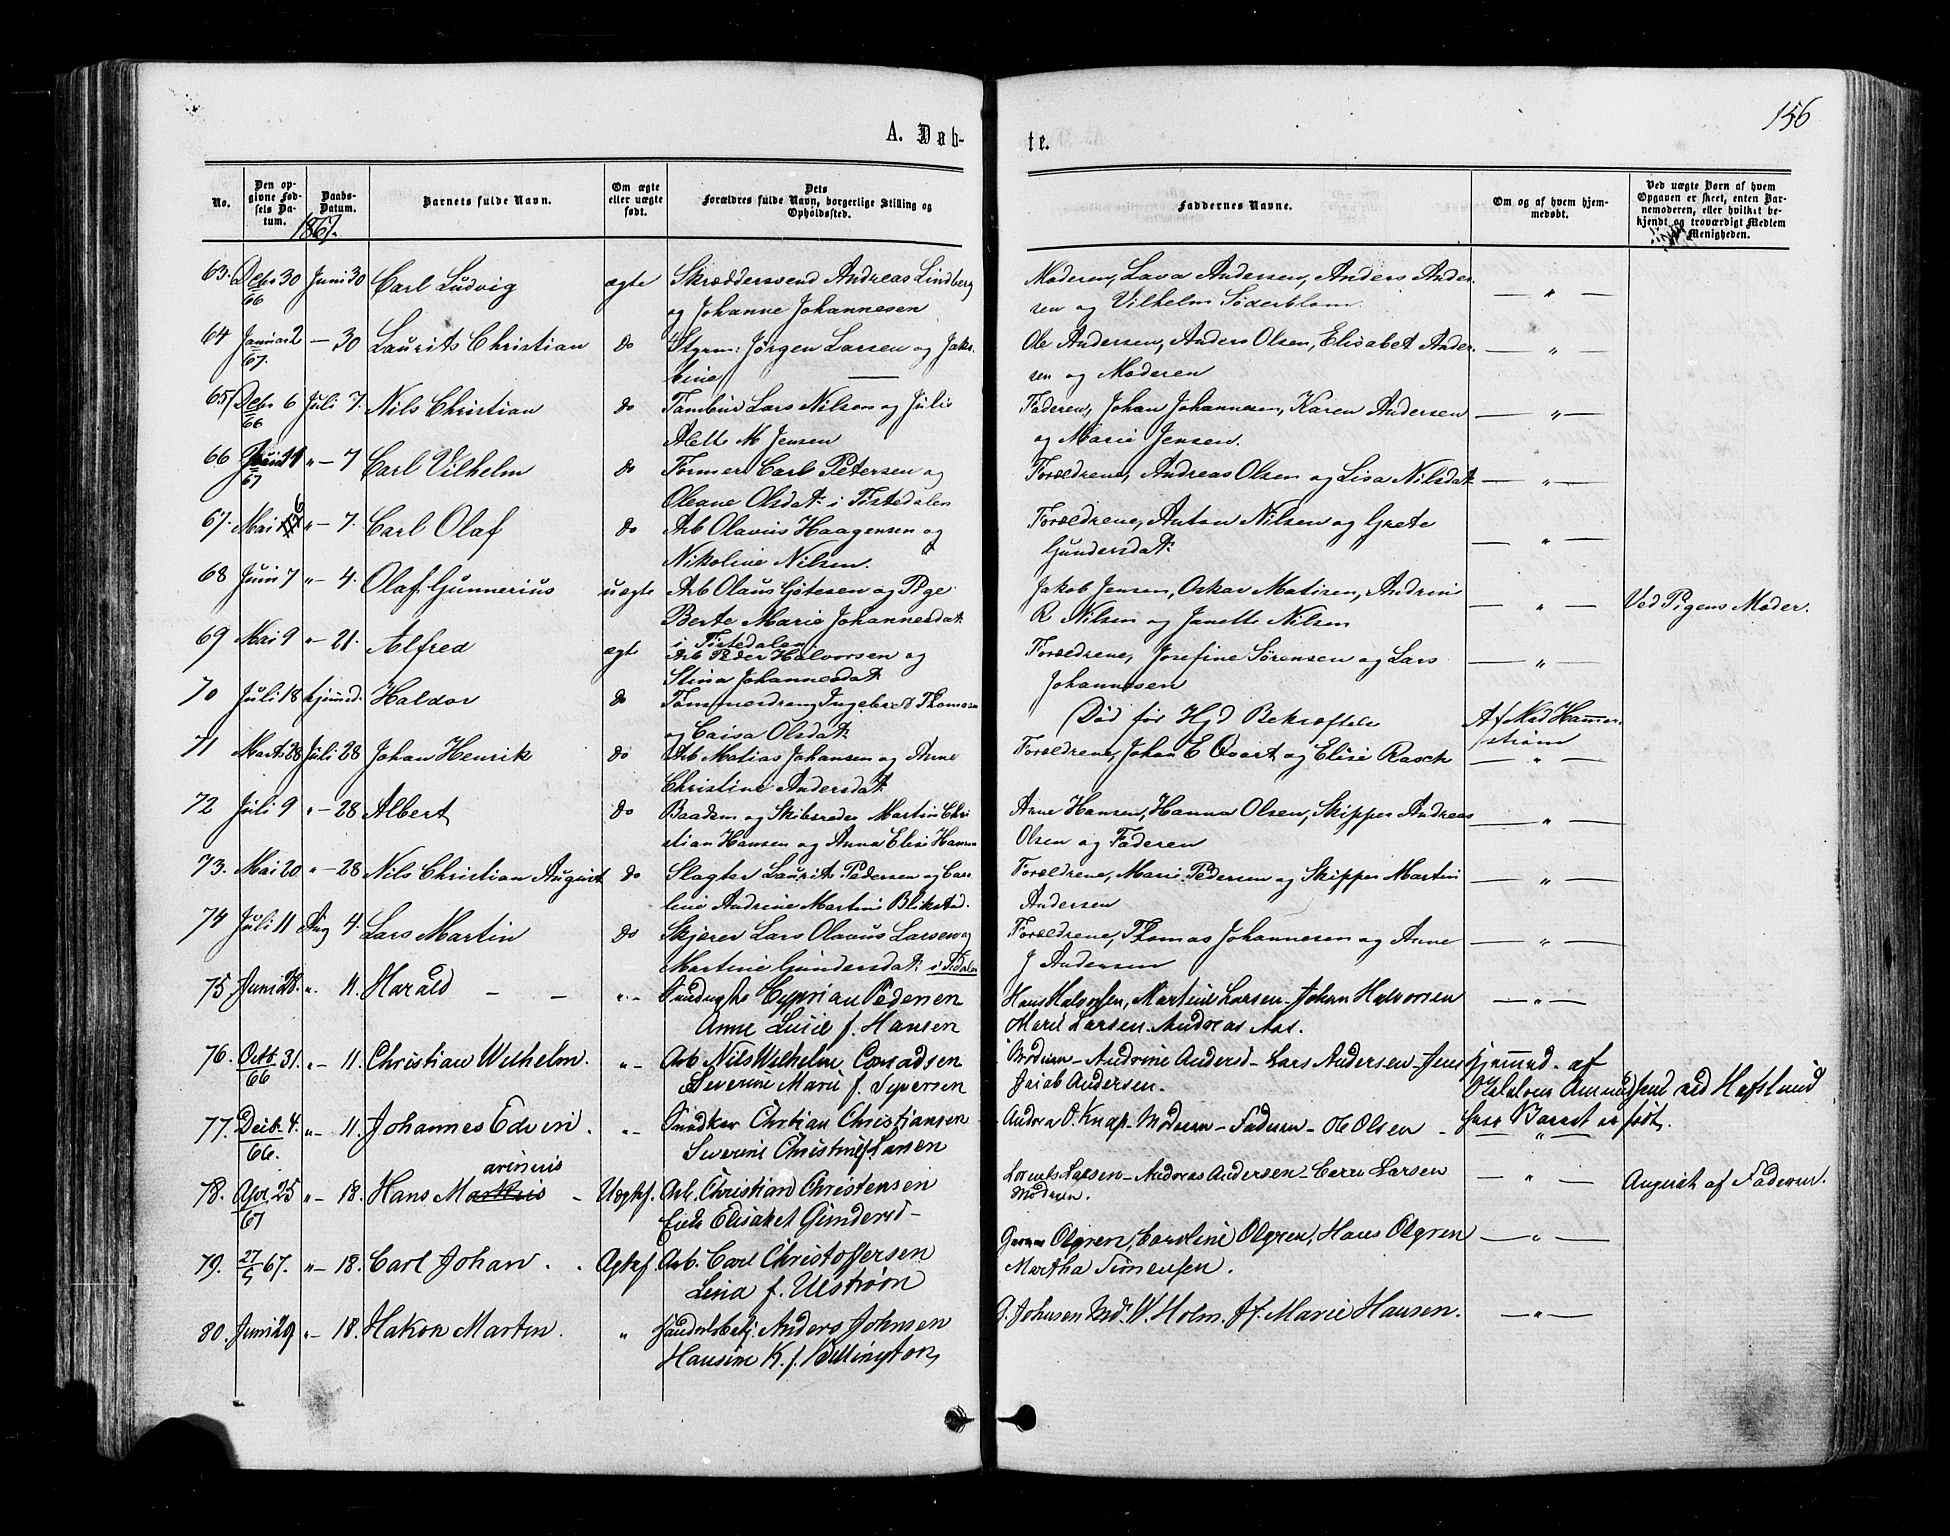 156
A. Døb-
te.
No.
Den op-
givne Fød-
sels Da-
tum.
Daabs-
Datum.
Barnets fulde Navn.
Om ægte
eller uægte
født.
Dets
Forældres fulde Navn, borgerlige Stilling og
Opholdssted.
Faddernes Navne.
Om og af hvem hjem-
medøbt.
Ved uægte Børn af hvem
Opgaven er skeet, enten Bar-
nemoderen, eller hvilket be-
kjendt og troværdigt Medlem
Menigheden.
1867.
63. Debr 30 Juni 30 Carl Ludvig ægte Skræddersvend Andreas Lindberg Moderen, Lava Andersen, Anders Ander- — " —
66 og Johanne Johannesen sen og Vilhelm Söderblom.
64 Januar 2 — 30 Laurits Christian do Styrm: Jørgen Larsen og Jako- Ole Andersen, Anders Olsen, Elisabet Ander- — " —
67. bine sen og Moderen
65. Debr 6 Juli 7. Nils Christian do Tambur Lars Nilsen og Juli Faderen, Johan Johannesen, Karen Andersen — " —
66 Alette M Jensen og Marie Jensen.
66 " — 7 Carl Vilhelm do Former Carl Petersen og Forældrene, Andreas Olsen og Lisa Nilsdat — " —
67 Oleane Olsdat: i Tistedalen
67. Mai 26 " — 7. Carl Olaf do Arb Olavus Haagensen og Forældrene, Anton Nilsen og Grete
Nikoline Nilsen. Gundersdat: — " —
68 Juni 7 " — 4. Olaf Gunnerius uægte Arb Olaus Gjøtesen og Pige Jakob Jensen, Oskar Matisen, Andrini
Berte Marie Johannesdat: R Nilsen og Janette Nilsen — " — Ved Pigens Moder.
i Tistedalen
69 Mai 9 " — 21. Alfred ægte Arb Peder Halvorsen og Forældrene, Josefine Sørensen og Lars — " —
Stina Johannesdat: Johannesen
70 Juli 18 hjemmed. Haldor do Tømmerdreng Ingebret Thomasen Død før Hjd Bekræftelse Af Mad Hammer
og Caisa Olsdat: strøm
71 Marts 28 Juli 28 Johan Henrik do Arb Matias Johansen og Anne Forældrene, Johan E Qvart og Elise Rasch — " —
Christine Andersdat:
72 Juli 9 " — 28 Albert do Baadsm og Skibsreder Martin Chri Anne Hansen, Hanna Olsen, Skipper Andreas — " —
stian Hansen og Anna Elise Hansen Olsen og Faderen
73. Mai 20 " — 28 Nils Christian August do Slagter Laurits Pedersen og Car Forældrene, Mari Pedersen og Skipper Martin — " —
line Andrine Martine Blikstad. Andersen
74 Juli 11 Aug 4. Lars Martin do Skjærer Lars Olavus Larsen og Forældrene, Thomas Johannesen og Anne — " —
Martine Gundersdat: i Tidalen J Andersen
75. Juni 28. " 11. Harald — — " - Cyprian Pedersen Hans Halvorsen, Martine Larsen - Johan Halvorsen — " —
Anne Lusie f. Hansen Marie Larsen - Andreas Aas.
76. Octb. 31. " - 11. Christian Wilhelm. " - Arb. Nils Wilhelm Conradsen Moderen - Andrine Andersd - Lars Andersen - Jens Hjemmd. af
66 Severine Marie f. Syversen Jacob Andersen. Halvor Amundsen ved Hafslund
77. Decb. 4. " - 11. Johannes Edvin. " - Snedker Chrtian Christiansen Andrea O. Knap - Moderen - Faderen - Ole Olsen - hvor Barnet er født.
66. Severine Christine f. Larsen — " —
arinius
78. Apr. 25 " - 18. Hans Martinis - Uægtef. Arb. Christian Christensen Lorents Larsen - Andreas Andersen - Caren Larsen — " — Angivet af Faderen.
67 Elisabet Gundersd - Moderen.
79. 27/5 67. " - 18. Carl Johan. - Ægtef. Arb. Carl Christoffersen Olgren, Caroline Olgren, Hans Olgren — " —
Lina f. Ulstrøm Martha Simensen.
80. Juni 29 " - 18. Hakon Martin. " Handelsbetj. Anders Johnsen G. Johnsen Md. W. Holm. Marie Hansen. — " —
Hansine K. f. Billington,